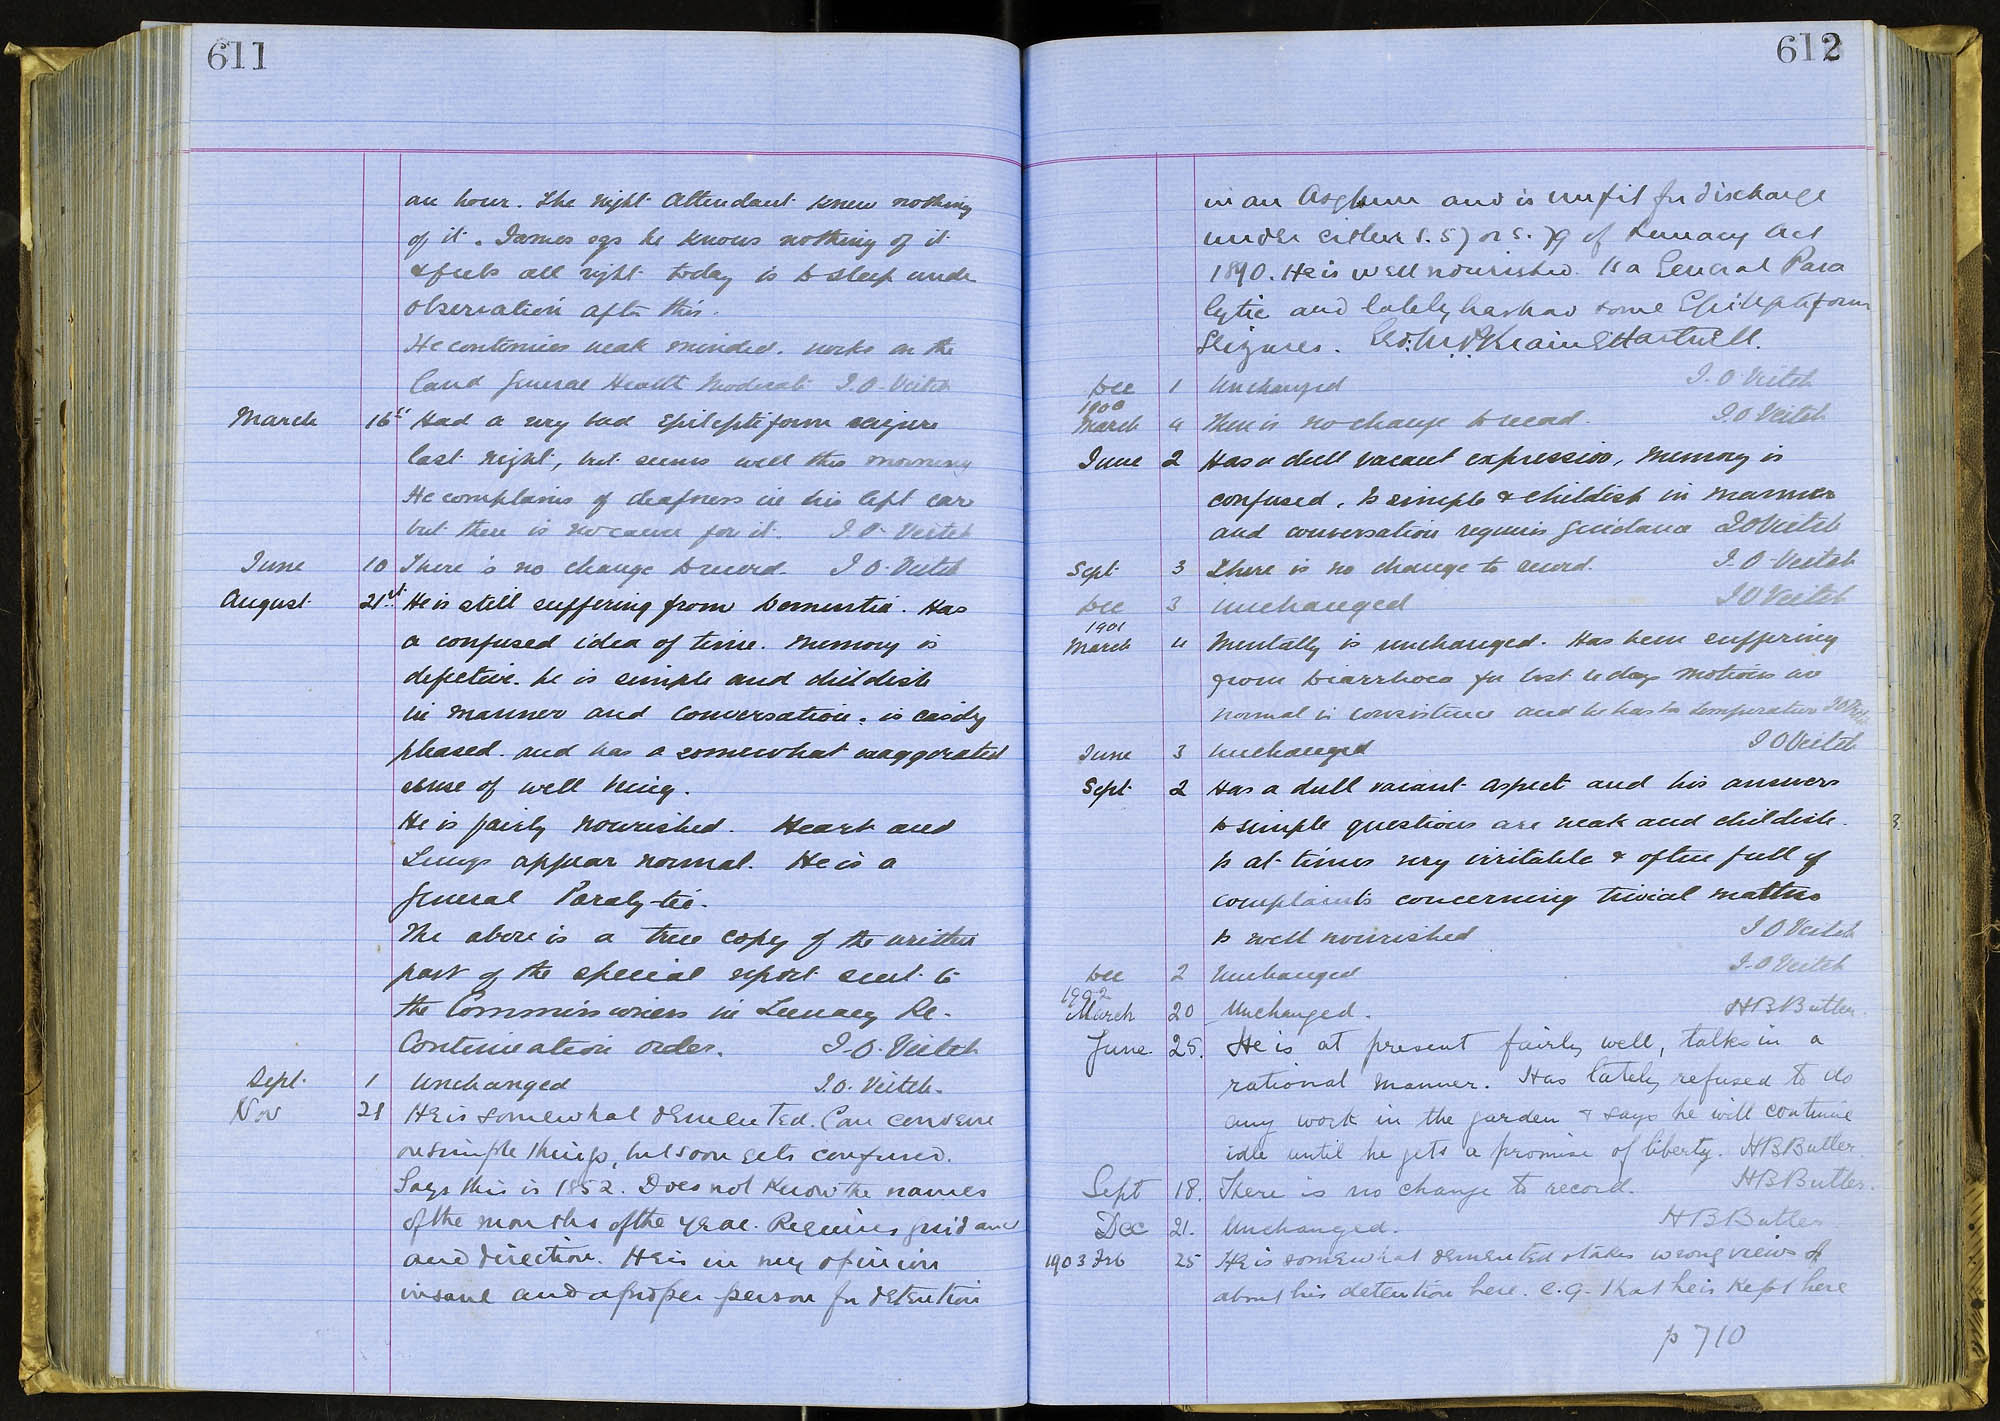 611
an hour. The night Attendant knew nothing
of it. James says he knows nothing of it
& feels all right today is to sleep under
observation after this.
He continues weak minded. works on the
land general Health Moderate J.O. Veitch
March 16th Had a very bad Epileptiform seizure
last night, but seems well this morning
He complains of deafness in his left ear
but there is no cause for it. J.O. Veitch
June 10 There is no change to record. J.O. Veitch
August 21st He is still suffering from Dementia. Has
a confused idea of time. Memory is
defective. he is simple and childish
in manner and conversation. is easily
pleased and has a somewhat exaggerated
sense of well being.
He is fairly nourished. Heart and
Lungs appear normal. He is a
General Paralytic.
The above is a true copy of the written
part of the special report sent to
the Commissioners in Lunacy Re-
Continuation order. J.O. Veitch
Sept. 1 Unchanged J.O. Veitch.
Nov 21 He is somewhat demented. Can converse
on simple things, but soon gets confused.
Says this is 1852. Does not know the names
of the months of the year. Requires guidance
and direction. He is in my opinion
insane and a proper person for detention
612
in an Asylum and is unfit for discharge
under either S. 57 or S. 79 of Lunacy Act
1890. He is well nourished. Is a General Para
lytic and lately has had some Epileptiform
Seizures.
Dec 1 Unchanged J.O. Veitch
1900
March 4 There is no change to record. J.O Veitch
June 2 Has a dull vacant expression, Memory is
confused. Is simple & childish in manner
and conversation requires guidance J O Veitch
Sept. 3 There is no change to record. J.O. Veitch
Dec 3 Unchanged J O Veitch
1901
March 4 Mentally is unchanged. Has been suffering
from Diarrhoea for last days Motions are
normal in consistence and he has no temperature J O Veitch
June 3 Unchanged J O Veitch
Sept. 2 Has a dull vacant aspect and his answers
to simple questions are weak and childish.
Is at times very irritable & often full of
complaints concerning trivial matters
Is well nourished J O Veitch
Dec 2 Unchanged J.O Veitch
1902
March 20 Unchanged. H B Butler.
June 25. He is at present fairly well, talks in a
rational manner. Has lately refused to do
any work in the garden & says he will continue
idle until he gets a promise of liberty. H B Butler.
Sept 18. There is no change to record. H B Butler.
Dec 21. Unchanged. H B Butler
1903 Feb 25 He is somewhat demented & takes wrong views of
about his detention here. e.g. that he is kept here
p 710